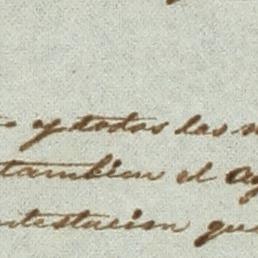 y todos las
tambien el
ntestacion que